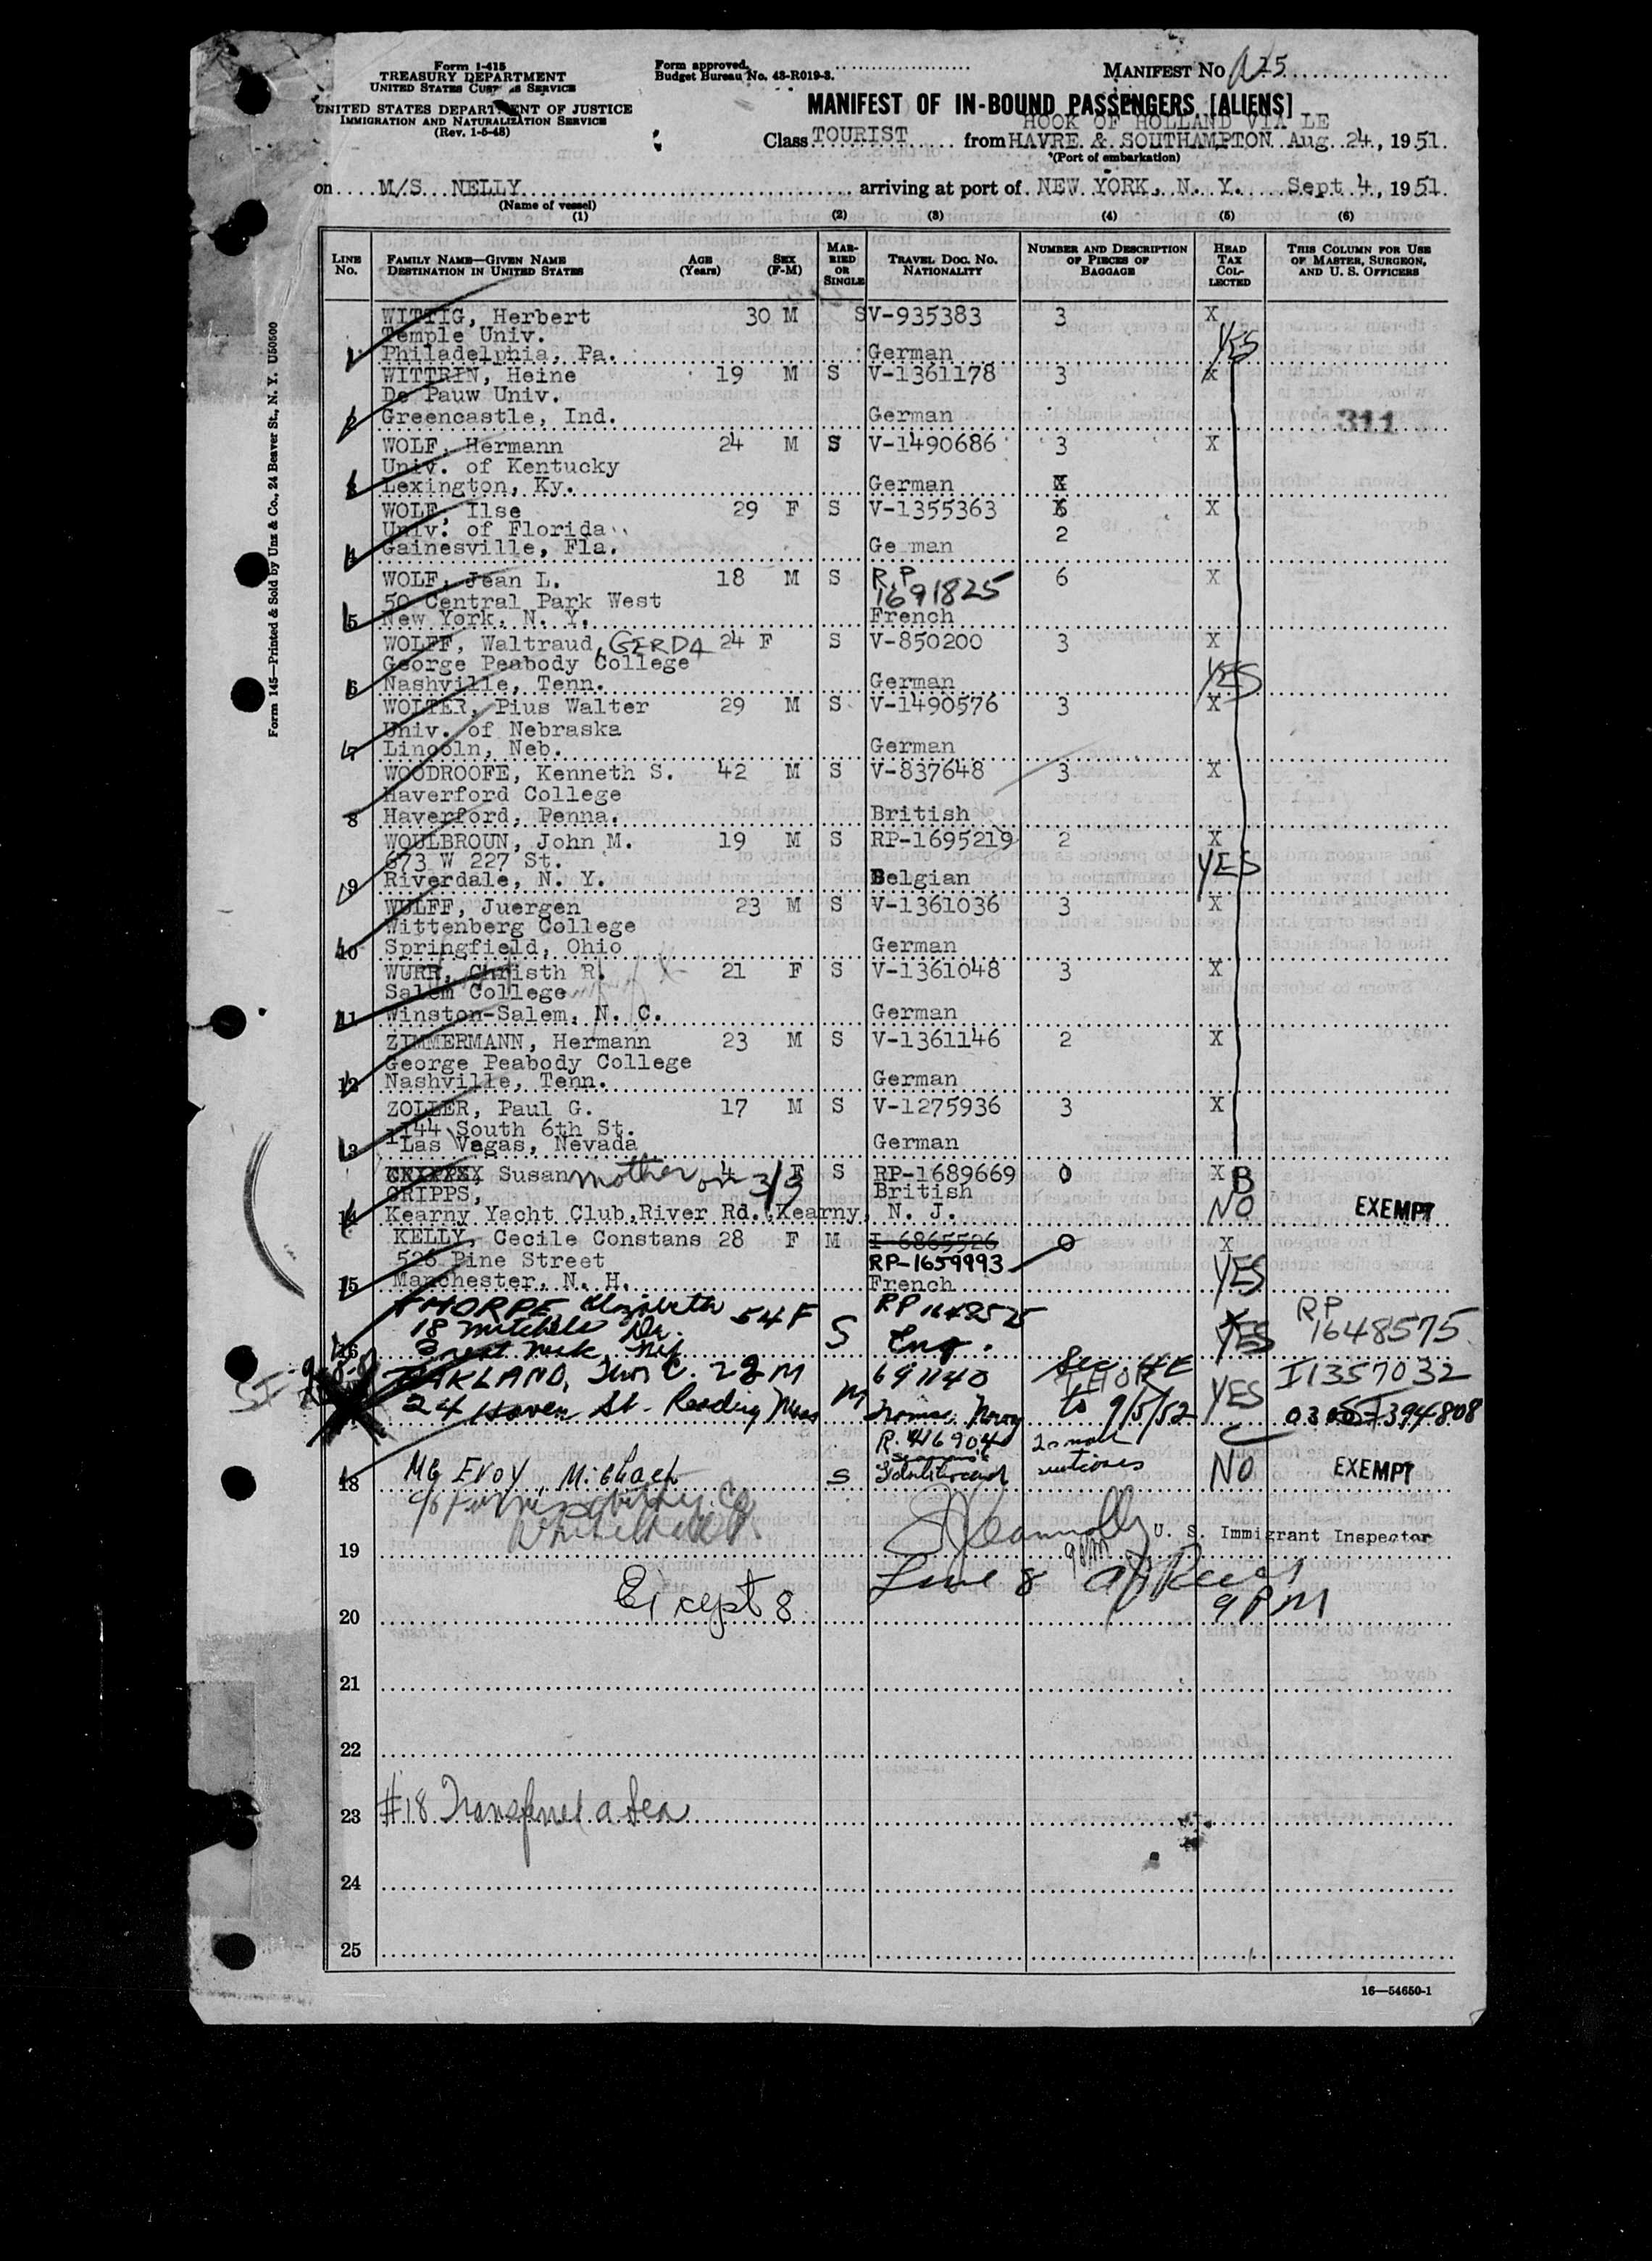 Form I-415
TREASURY DEPARTMENT
UNITED STATES CUSTOMS SERVICE
UNITED STATES DEPARTMENT OF JUSTICE
IMMIGRATION AND NATURALIZATION SERVICE
(Rev. 1-5-48)
Form approved.
Budget Bureau No. 43-R019-3.
MANIFEST No. 25
MANIFEST OF IN-BOUND PASSENGERS [ALIENS]
HOOK OF HOLLAND VIA LE
Class TOURIST from HAVRE & SOUTHAMPTON Aug 24, 1951
(Port of embarkation)
on M/S NELLY arriving at port of NEW YORK, N. Y. Sept 4, 1951
(Name of vessel)
(1) (2) (3) (4) (5) (6)
LINE No. FAMILY NAME—GIVEN NAME DESTINATION IN UNITED STATES AGE (Years) SEX (F-M) MARRIED OR SINGLE TRAVEL DOC. NO. NATIONALITY NUMBER AND DESCRIPTION OF PIECES OF BAGGAGE HEAD TAX COLLECTED THIS COLUMN FOR USE OF MASTER, SURGEON, AND U. S. OFFICERS
WITTIG, Herbert 30 M S V-935383 3 X
Temple Univ.
1 Philadelphia, Pa. German YES
WITTRIN, Heine 19 M S V-1361178 3 X
De Pauw Univ.
2 Greencastle, Ind. German
311
WOLF, Hermann 24 M S V-1490686 3 X
Univ. of Kentucky
3 Lexington, Ky. German X
WOLF, Ilse 29 F S V-1355363 X
Univ. of Florida 2
4 Gainesville, Fla. Ge man
WOLF, Jean L. 18 M S R.P 1691825 6 X
50 Central Park West
5 New York, N. Y. French
WOLFF, Waltraud, GERDA 24 F S V-850200 3 X
George Peabody College
6 Nashville, Tenn. German YES
WOLTER, Pius Walter 29 M S V-1490576 3 X
Univ. of Nebraska
7 Lincoln, Neb. German
WOODROOFE, Kenneth S. 42 M S V-837648 3 X
Haverford College
8 Haverford, Penna. British
WOULBROUN, John M. 19 M S RP-1695219 2 X
673 W 227 St.
9 Riverdale, N. Y. Belgian YES
WULFF, Juergen 23 M S V-1361036 3 X
Wittenberg College
10 Springfield, Ohio German
WURR, Christh R. 21 F S V-1361048 3 X
Salem College
11 Winston-Salem, N. C. German
ZIMMERMANN, Hermann 23 M S V-1361146 2 X
George Peabody College
12 Nashville, Tenn. German
ZOLLER, Paul G. 17 M S V-1275936 3 X
1144 South 6th St.
13 Las Vegas, Nevada German
Susan mother on 3/9 4 F S RP-1689669 0 X B
CRIPPS, British
14 Kearny Yacht Club, River Rd., Kearny, N. J. NO EXEMPT
KELLY, Cecile Constans 28 F M I-6865526 0 X
526 Pine Street RP-1659993
15 Manchester, N. H. French YES
THORPE, Elizabeth 54 F S RP
18 Mitchell Dr. RP 1648575
16 Great Neck, NY Eng. YES
691140 Sec. 4E I 1357032
24 Haven St. Reading Mass M to 9/5/52 YES
R. 416904
18 Mc Evoy, Michael S NO EXEMPT
c/o
Whitehall
19 U. S. Immigrant Inspector
9 PM
Line 8
Except 8 9 PM
20
21
22
23 #18 Transferred a Sea
24
25
16—54650-1
Form 145—Printed & Sold by Unz & Co., 24 Beaver St., N. Y. U50600